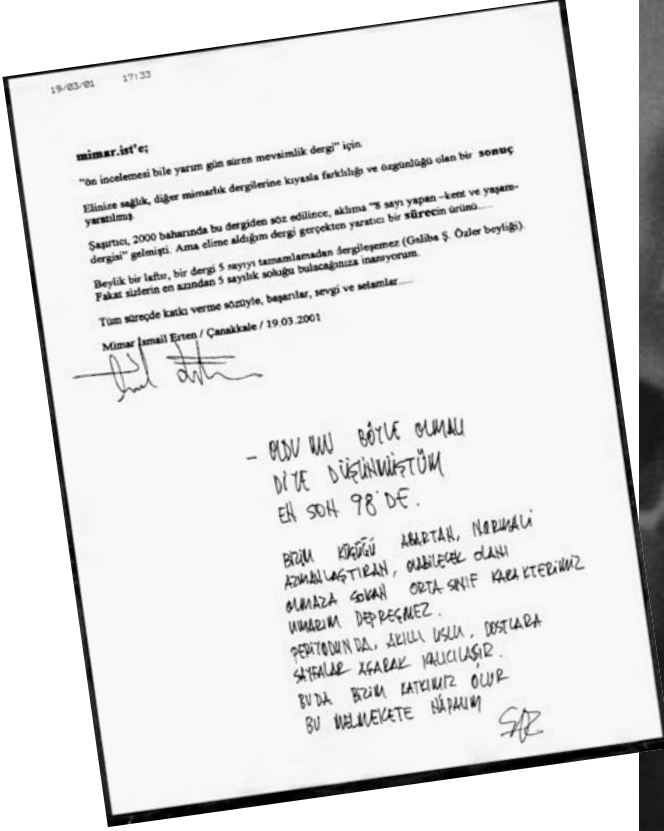 19/03/01 17:33
mimar.ist'e;
"ön incelemesi bile yarım gün süren mevsimlik dergi" için
Elinize sağlık, diğer mimarlık dergilerine kıyasla farklılığı ve özgünlüğü olan bir sonuç
yaratılmış.
Şaşırtıcı, 2000 baharında bu dergiden söz edilince, aklıma "8 sayı yapan –kent ve yaşam-
dergisi" gelmişti. Ama elime aldığım dergi gerçekten yaratıcı bir sürecin ürünü.....
Beylik bir laftır, bir dergi 5 sayıyı tamamlamadan dergileşemez (Galiba Ş. Özler beyliği).
Fakat sizlerin en azından 5 sayılık soluğu bulacağınıza inanıyorum.
Tüm süreçde katkı verme sözüyle, başarılar, sevgi ve selamlar.....
Mimar İsmail Erten / Çanakkale / 19.03.2001
– OLDU MU BÖYLE OLMALI
DİYE DÜŞÜNMÜŞTÜM
EN SON 98'DE.
BİZİM KÜÇÜĞÜ ABARTAN, NORMALİ
AZMANLAŞTIRAN, OLABİLECEK OLANI
OLMAZA SOKAN ORTA SINIF KARAKTERİMİZ
UMARIM DEPREŞMEZ.
PERİYODUNDA, AKILLI USLU, DOSTLARA
SAYFALAR AÇARAK KALICILAŞIR.
BU DA BİZİM KATKIMIZ OLUR
BU MEMLEKETE NAPALIM